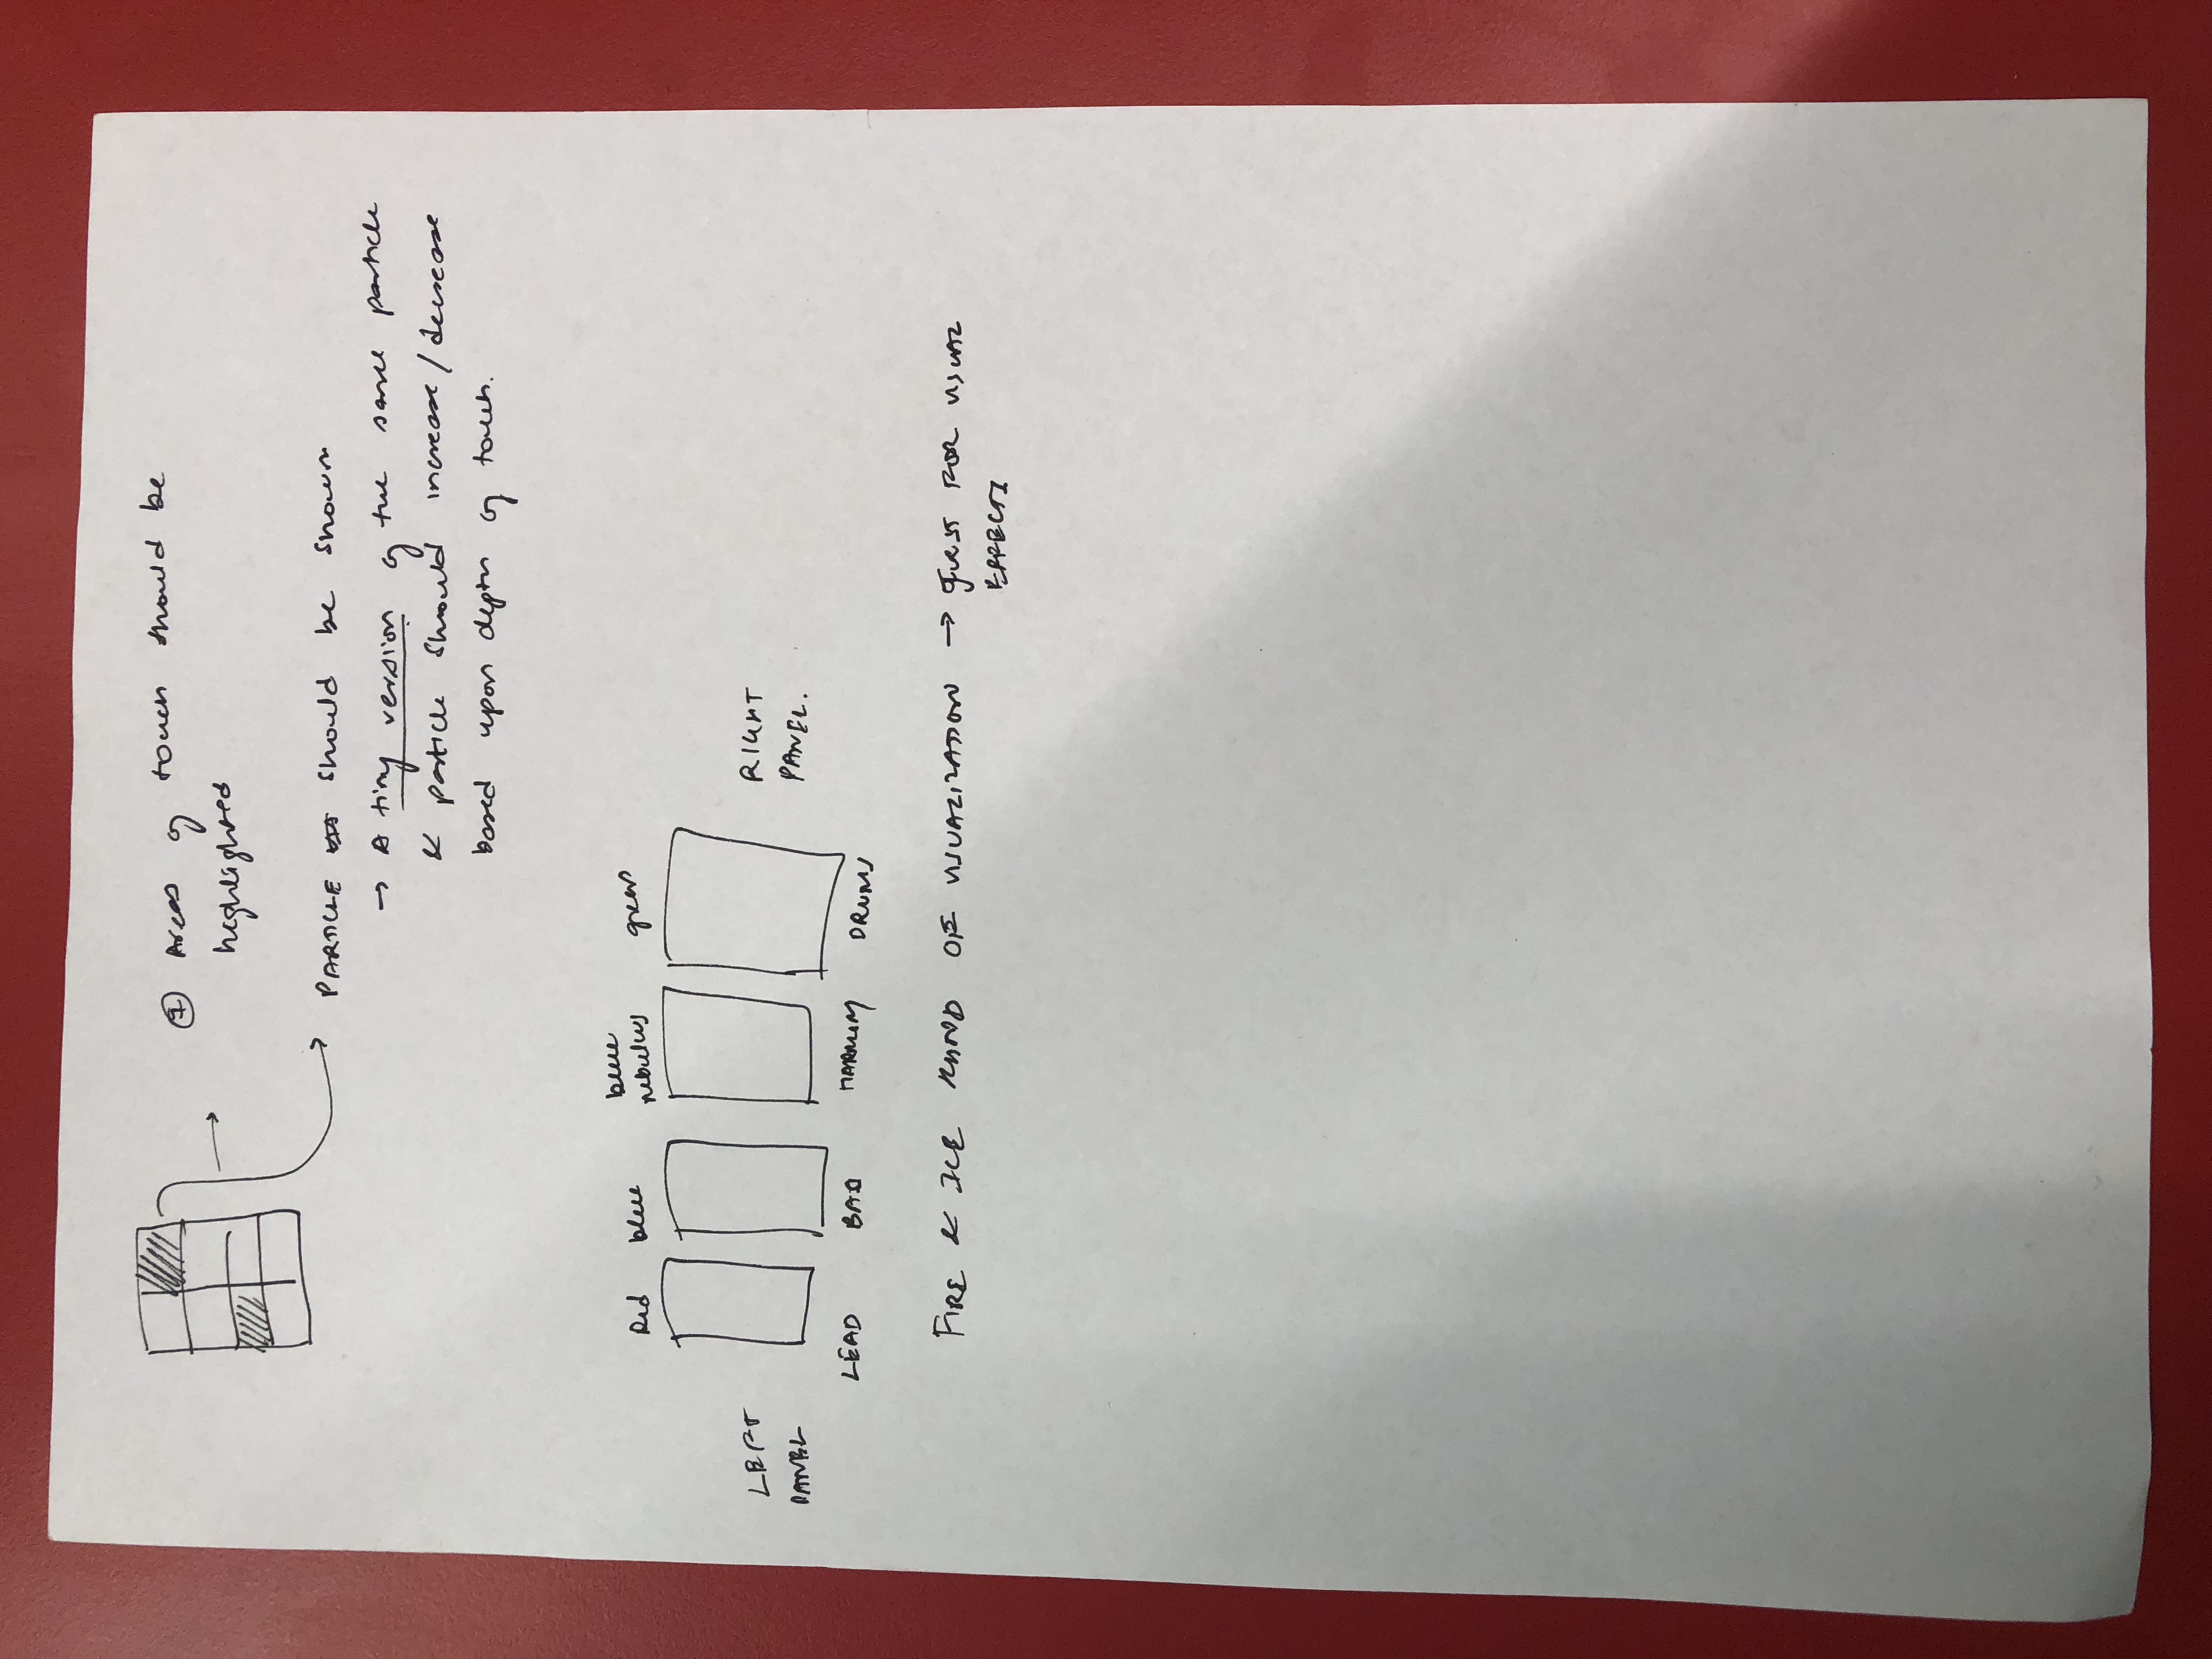 ① Areas of touch should be
highlighted
PARTICLE should be shown
→ A tiny version of the same particle
& particle should increase/decrease
based upon depth of touch.
Red blue blue nebulus green
LEFT PANEL
RIGHT PANEL.
LEAD HARMONY DRUMS
FIRE & ICE KIND OF VISUALIZATION → JUST FOR VISUAL
EFFECTS